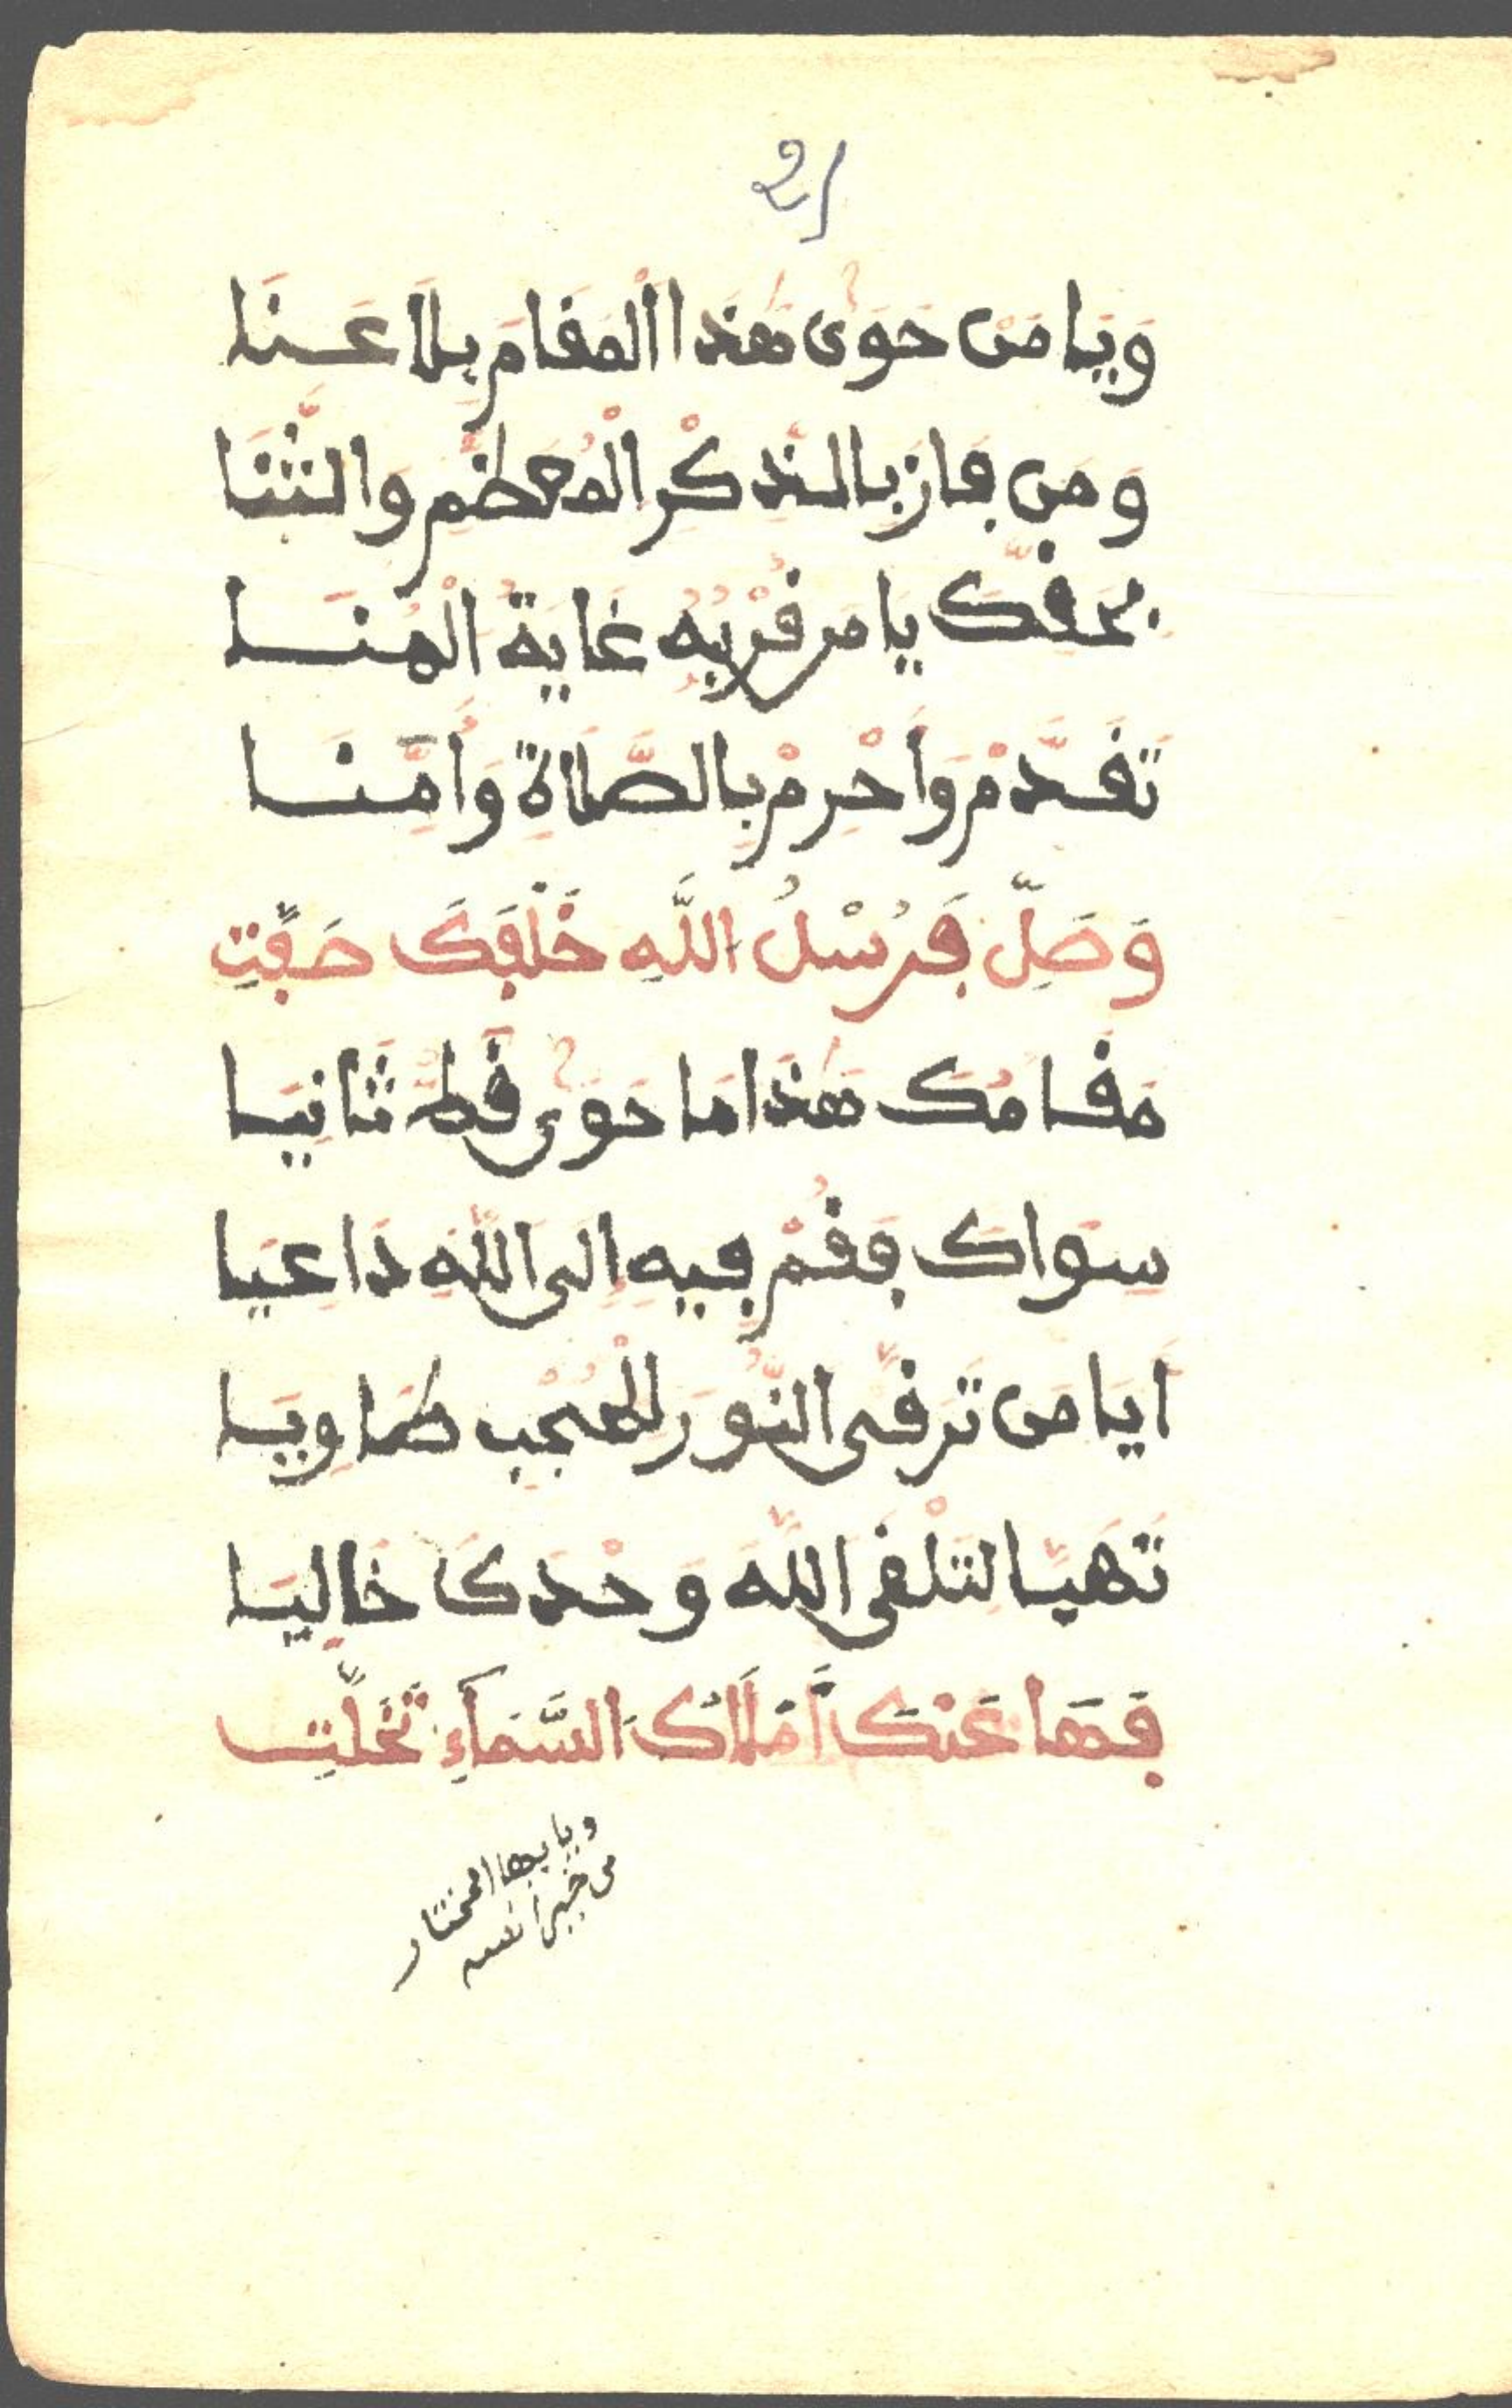 21
وَيَا مَنْ حَوَى هَذَا الْمَقَامَ بِلَا عَنَا
وَمَن فَازَ بِالذِّكْرِ الْمُعَظَّمِ وَالثَّنَا
بِحَقِّكَ يَا مَن قُرْبُهُ غَايَةُ الْمُنَا
تَقَدَّمْ وَأَحْرِمْ بِالصَّلَاةِ وَأُمَّنَا
وَصَلِّ فَرُسْلُ اللَّهِ خَلْفَكَ صَفَّتِ
مَقَامُكَ هَذَا مَا حَوَى قَطُّ ثَانِيَا
سِوَاكَ فَقُمْ فِيهِ إِلَى اللَّهِ دَاعِيَا
اَيَا مَن تَرَقَّى النُّورَ لِلْحُجْبِ طَاوِيَا
تَهَيَّا لِتَلْقَى اللَّهَ وَحْدَكَ خَالِيَا
فَهَا عَنْكَ أَمْلَاكُ السَّمَآءِ تَخَلَّتِ
ويا يها المختار
من خير